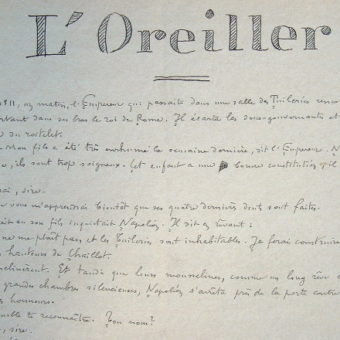 L'Oreiller
11, un matin, l'Empereur qui passait dans une salle des Tuileries
portant dans ses bras le roi de Rome. Il écarta les sous-gouvernantes et
du roitelet.
mon fils a été très enrhumé la semaine dernière, dit l'Empereur. N
ils sont trop soigneux. Cet enfant a une bonne constitution
sire.
vous m'apprendrez bientôt que ses quatre dernières dents sont faites.
son fils inquiétait Napoléon. Il dit en rêvant :
ne me plaît pas et les Tuileries sont inhabitables. Je ferai construire
hauteurs de Chaillot.
Et tandis que leurs mousselines, comme un long rêve
grandes chambres silencieuses, Napoléon s'arrêta près de la porte
honneurs.
reconnaître. Ton nom?
sire.